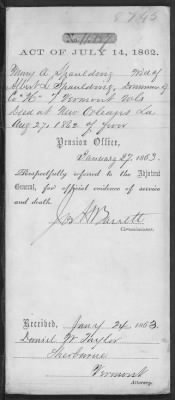 8795
No.
ACT OF JULY 14, 1862.
Mary A Spaulding Wid of
Albert L Spaulding, drummer of
Co "H" 7 Vermont Vols
died at New Orleans La
Aug 27, 1862 of fever
Pension Office,
January 27, 1863.
Respectfully referred to the Adjutant
General, for official evidence of service
and death.
Jos H Barrett
Commissioner.
Received, Jany 24 1863.
Daniel W Taylor
Sherburne
Vermont
Attorney.